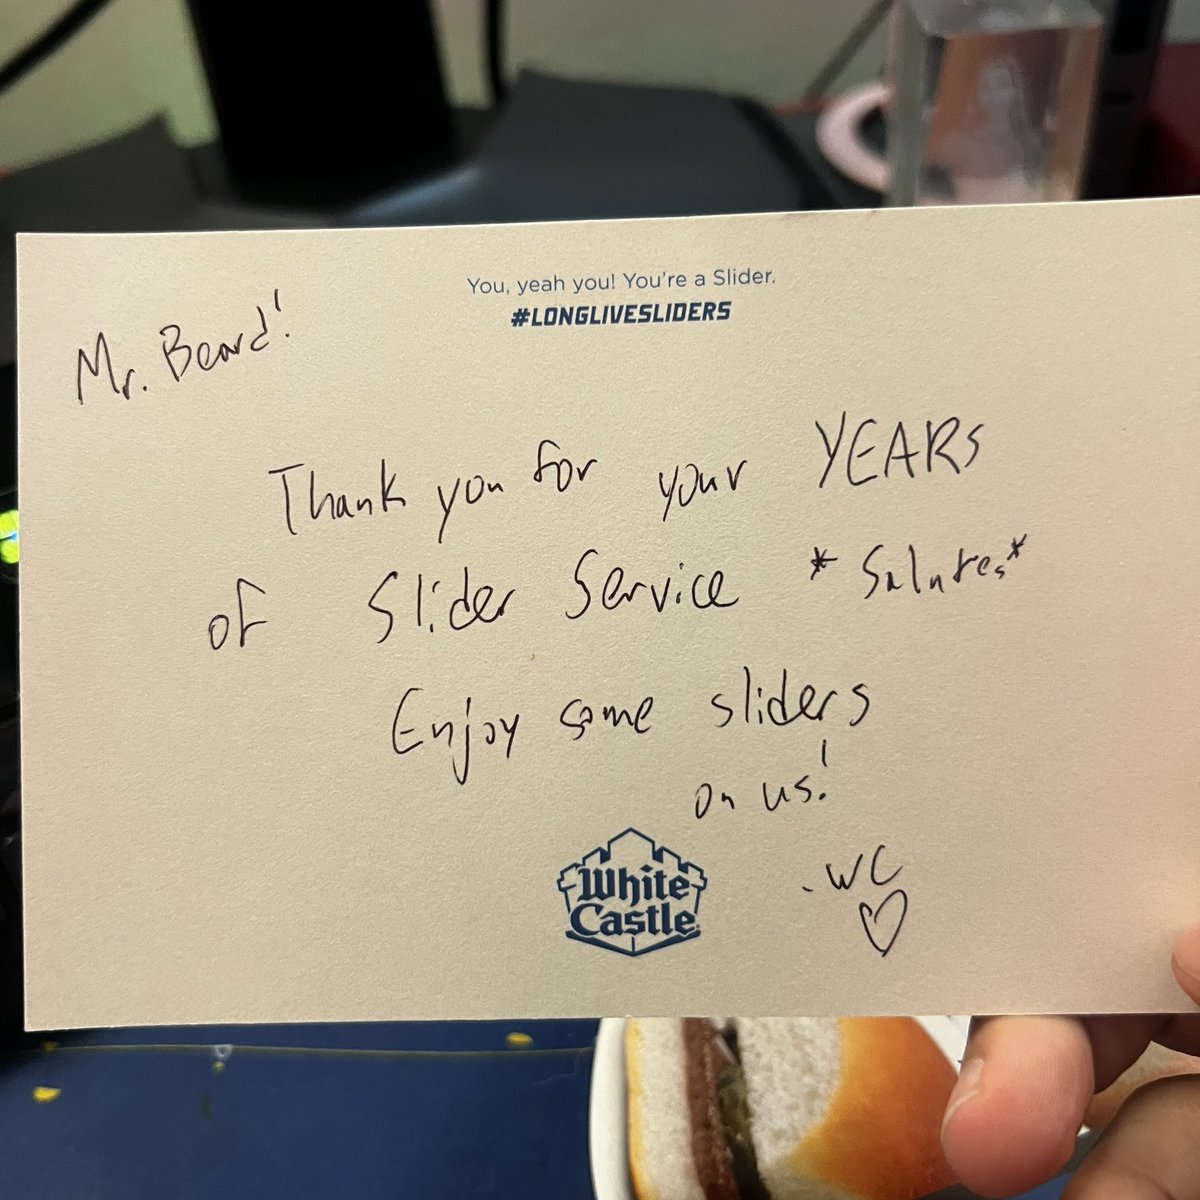 You, yeah you! You're a Slider.
#LONGLIVESLIDERS
Mr. Beard!
Thank you for your YEARS
of Slider Service *Salutes*
Enjoy some sliders
on us!
White
Castle
- WC ♡